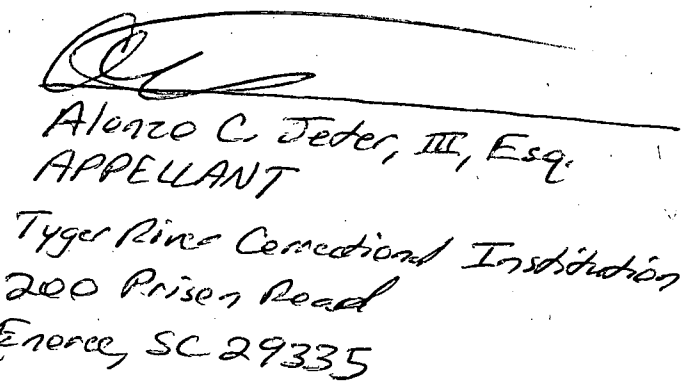 Alonzo C. Jeter, III, Esq.
APPELLANT
Tyger River Correctional Institution
200 Prison Road
Enoree, SC 29335